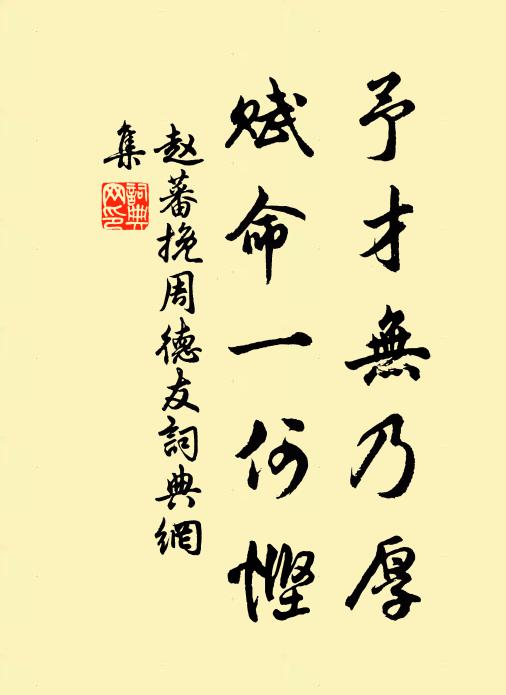 予才無乃厚
賦命一何慳
赵蕃挽周德友詞典網
集
詞典
网印